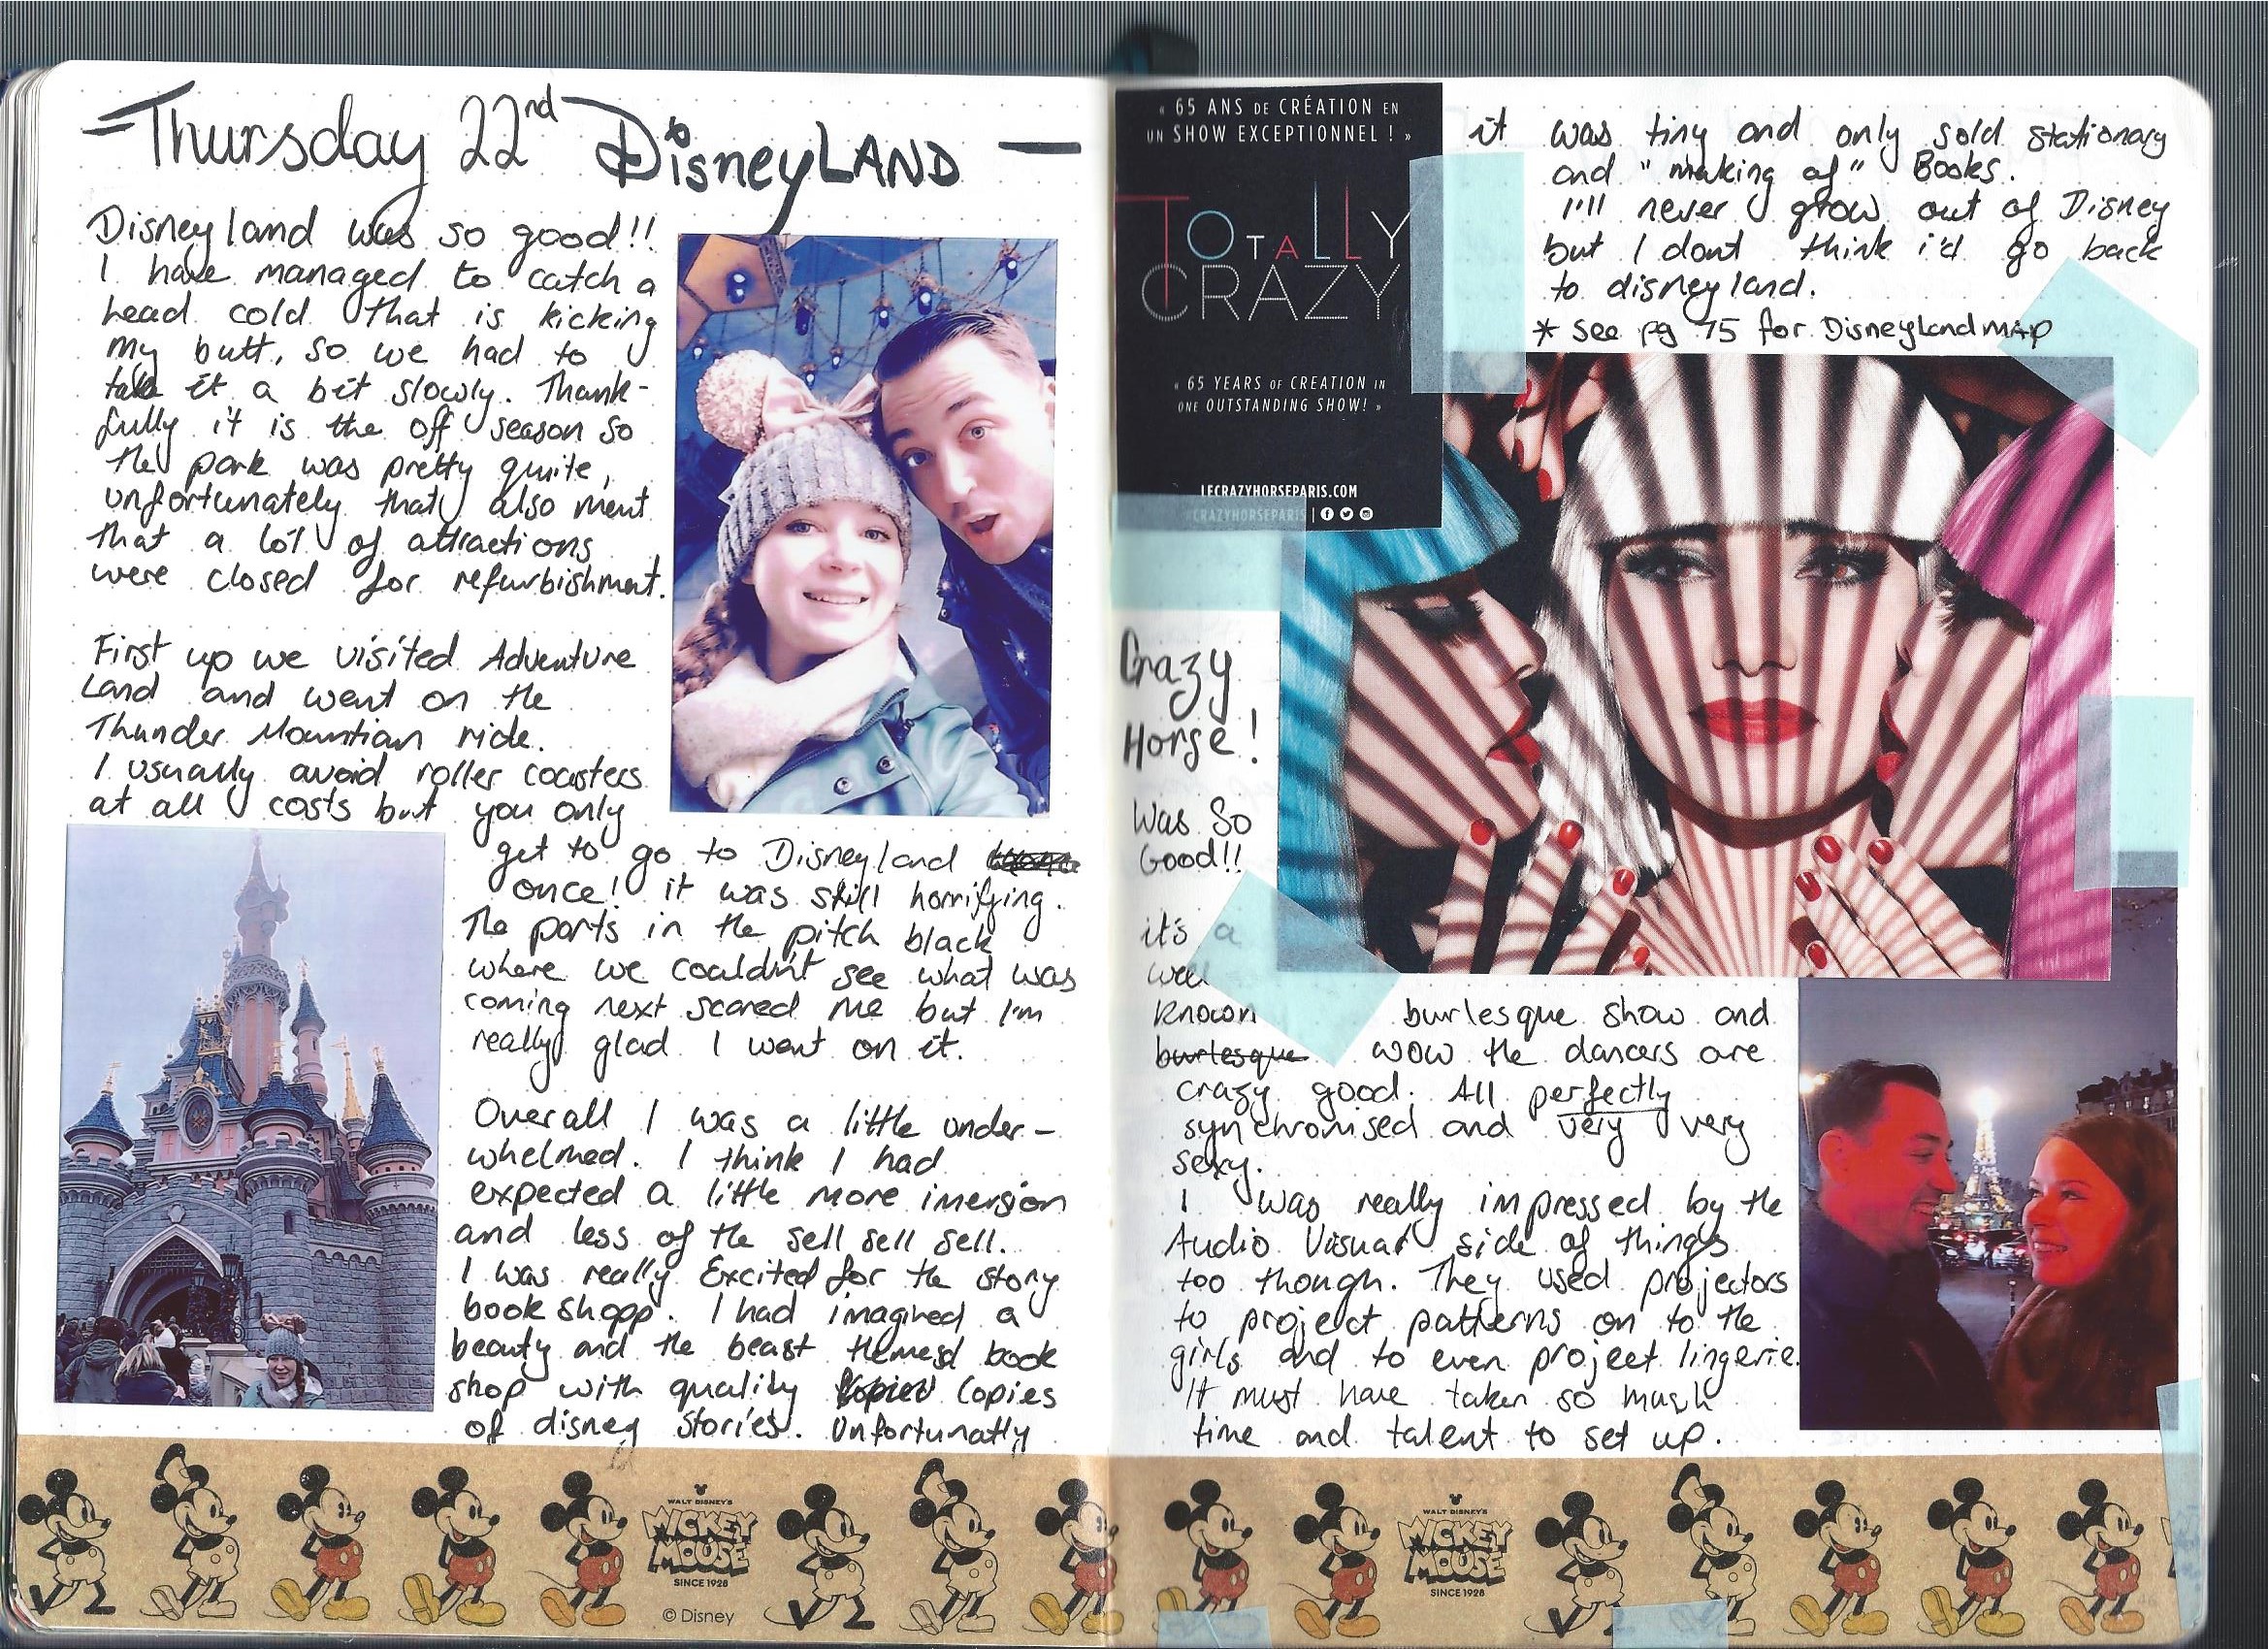 Thursday 22nd DisneyLAND
Disneyland was so good!!
I have managed to catch a
head cold that is kicking
my butt, so we had to
take it a bit slowly. Thank-
fully it is the off season so
the park was pretty quite,
unfortunately that also ment
that a lot of attractions
were closed for refurbishment.
First up we visited Adventure
Land and went on the
Thunder Mountian ride.
I usually avoid roller coasters
at all costs but you only
get to go to Disneyland
once! it was still horrifying.
The parts in the pitch black
where we couldn't see what was
coming next scared me but I'm
really glad I went on it.
Overall I was a little under-
whelmed. I think I had
expected a little more imersion
and less of the sell sell sell.
I was really Excited for the story
book shopp. I had imagined a
beauty and the beast themed book
shop with quality copies
of disney stories. Unfortunatly
WALT DISNEY'S
MICKEY
MOUSE
SINCE 1928
© Disney
« 65 ANS DE CRÉATION EN
UN SHOW EXCEPTIONNEL ! »
TOTALLY
CRAZY
« 65 YEARS OF CREATION IN
ONE OUTSTANDING SHOW! »
LECRAZYHORSEPARIS.COM
#CRAZYHORSEPARIS
it was tiny and only sold stationary
and "making of" Books.
I'll never grow out of Disney
but I dont think i'd go back
to disneyland.
* see pg 75 for Disneyland MAP
Crazy
Horse!
Was So
Good!!
it's a
well
known burlesque show and
burlesque wow the dancers are
crazy good. All perfectly
synchronised and very very
sexy.
I was really impressed by the
Audio Visual side of things
too though. They used projectors
to project patterns on to the
girls and to even project lingerie.
It must have taken so much
time and talent to set up.
WALT DISNEY'S
MICKEY
MOUSE
SINCE 1928